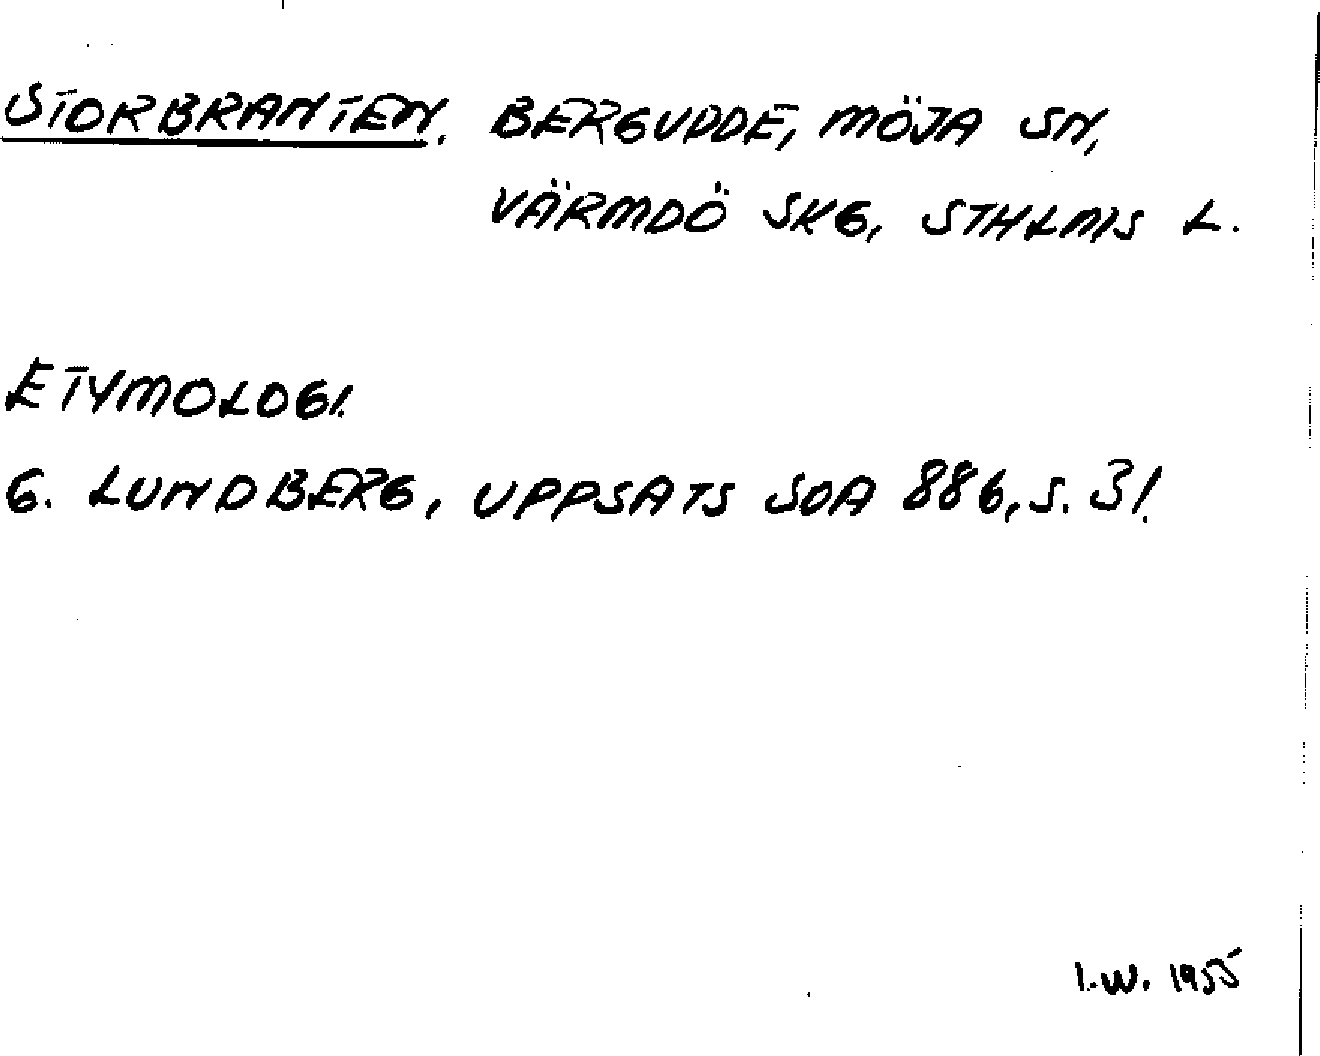 STORBRANTEN. BERGUDDE, MÖJA SN,
VÄRMDÖ SKG, STHLMS L.
ETYMOLOGI.
G. LUNDBERG, UPPSATS SOA 886, S. 31.
I.W. 1955